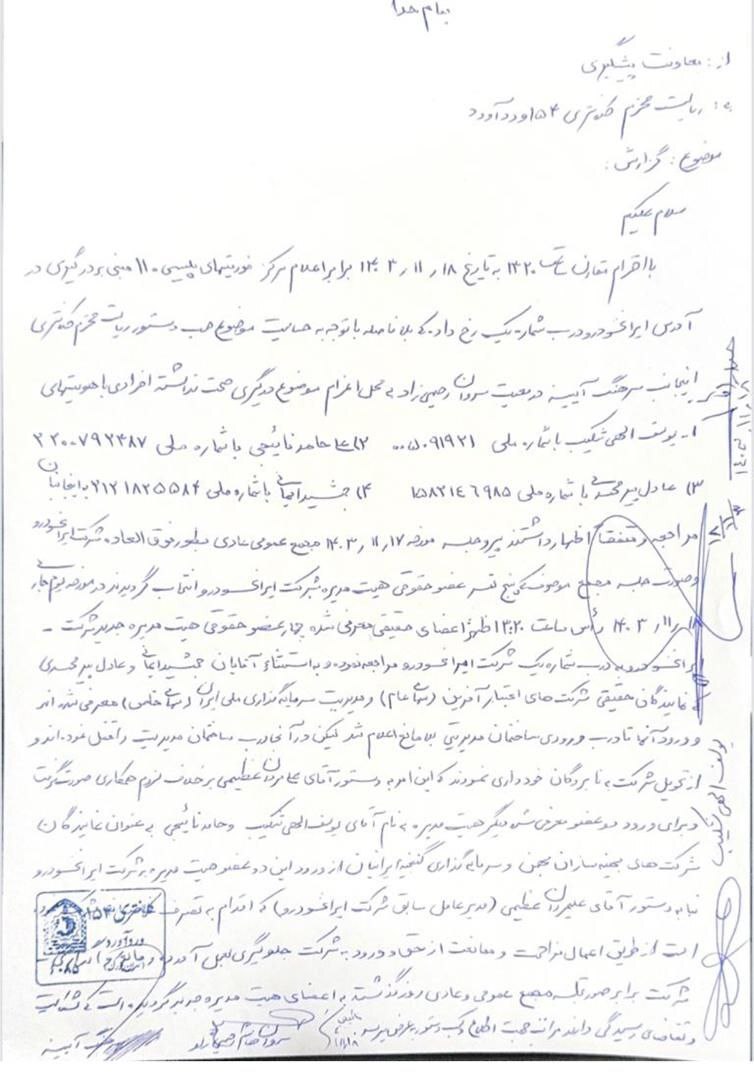 بنام خدا
از: معاونت پیشگیری
به: ریاست محترم کلانتری ۱۵۴ وردآورد
موضوع: گزارش:
سلام علیکم
با احترام ساعت ۱۳۲۰ به تاریخ ۱۸ / ۱۱ / ۱۴۰۳ برابر اعلام مرکز فوریتهای پلیسی ۱۱۰ مبنی بر درگیری در
آدرس ایرانخودرو درب شماره یک رخ داد. که بلافاصله با توجه به حساسیت موضوع حسب دستور ریاست محترم کلانتری
اینجانب سرهنگ آیینه در معیت سروان رحیمی راد به محل اعزام موضوع درگیری صحت نداشته افرادی با هویتهای
۱- یوسف الهی شکیب با شماره ملی ۲) حامد نائیجی با شماره ملی
۳) عادل پیرمحمدی با شماره ملی ۴) جمشید ایمانی با شماره ملی به اینجانبان
مراجعه و متفقاً اظهار داشتند پیرو جلسه مورخه ۱۴۰۳/۱۱/۱۷ مجمع عمومی عادی بطور فوق العاده شرکت ایرانخودرو
و صورت جلسه مجمع موصوف که پنج نفر عضو حقوقی هیئت مدیره شرکت ایرانخودرو انتخاب گردیدند در مورخه یوم جاری
۱۴۰۳/۱۱/۱۸ رأس ساعت ۱۳:۲۰ ظهر اعضای حقیقی معرفی شده چهار عضو حقوقی هیئت مدیره جدید شرکت -
ایرانخودرو به درب شماره یک شرکت ایرانخودرو مراجعه نموده و به استثناء آقایان جمشید ایمانی و عادل پیرمحمدی
نمایندگان حقیقی شرکت های اعتبار آفرین (سهامی عام) و مدیریت سرمایه گذاری ملی ایران (سهامی خاص) معرفی شده اند
و ورود آنها تا درب ورودی ساختمان مدیریتی بلامانع اعلام شد لیکن در آنجا درب ساختمان مدیریت را قفل نموده اند و
از تحویل شرکت به نامبردگان خودداری نمودند که این امر به دستور آقای علیمردان عظیمی بر خلاف لزوم همکاری صورت گرفت
و برای ورود دو عضو معرفی شده دیگر هیئت مدیره به نام آقای یوسف الهی شکیب و حامد نائیجی به عنوان نمایندگان
شرکت های سرمایه گذاری گنجینه ایرانیان از ورود این دو عضو هیئت مدیره به شرکت ایرانخودرو
بنا به دستور آقای علیمردان عظیمی (مدیرعامل سابق شرکت ایرانخودرو) که اقدام به تصرف
است از طریق اعمال مزاحمت و ممانعت از حق و ورود به شرکت جلوگیری بعمل آمده
شرکت برابر صورتجلسه مجمع عمومی و عادی روز گذشته به اعضای هیئت مدیره جدید گردیده است که شکایت
و تقاضای رسیدگی دارند مراتب جهت اطلاع و کسب دستور به عرض میرسد
۱۱/۱۸
سروان رحیمی راد
سرهنگ آیینه
کلانتری ۱۵۴
وردآورد
یوسف الهی شکیب
۱۴۰۳/۱۱/۱۸